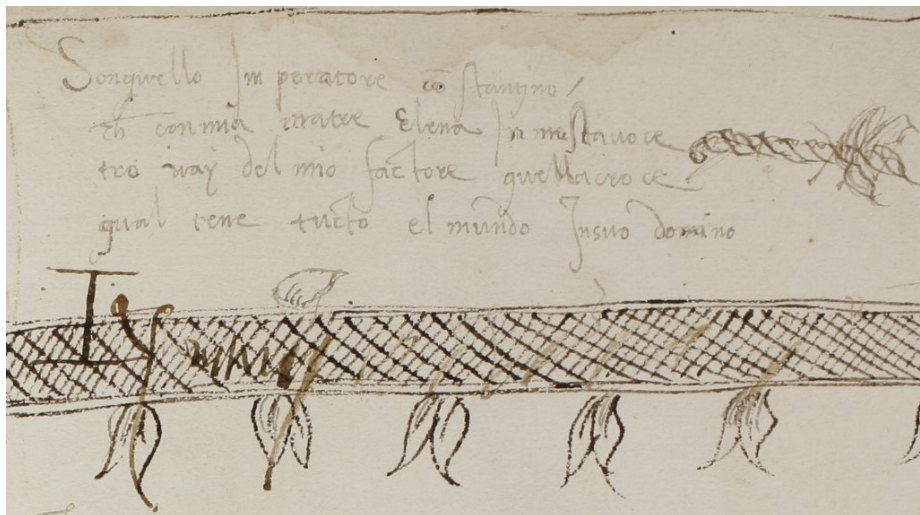 Sonquello Imperatore cōstantino
ch̄ con mia matre Elena In mestavoce
trovay del mio factore quellacroce
qual tene tucto el mundo Insuo domino